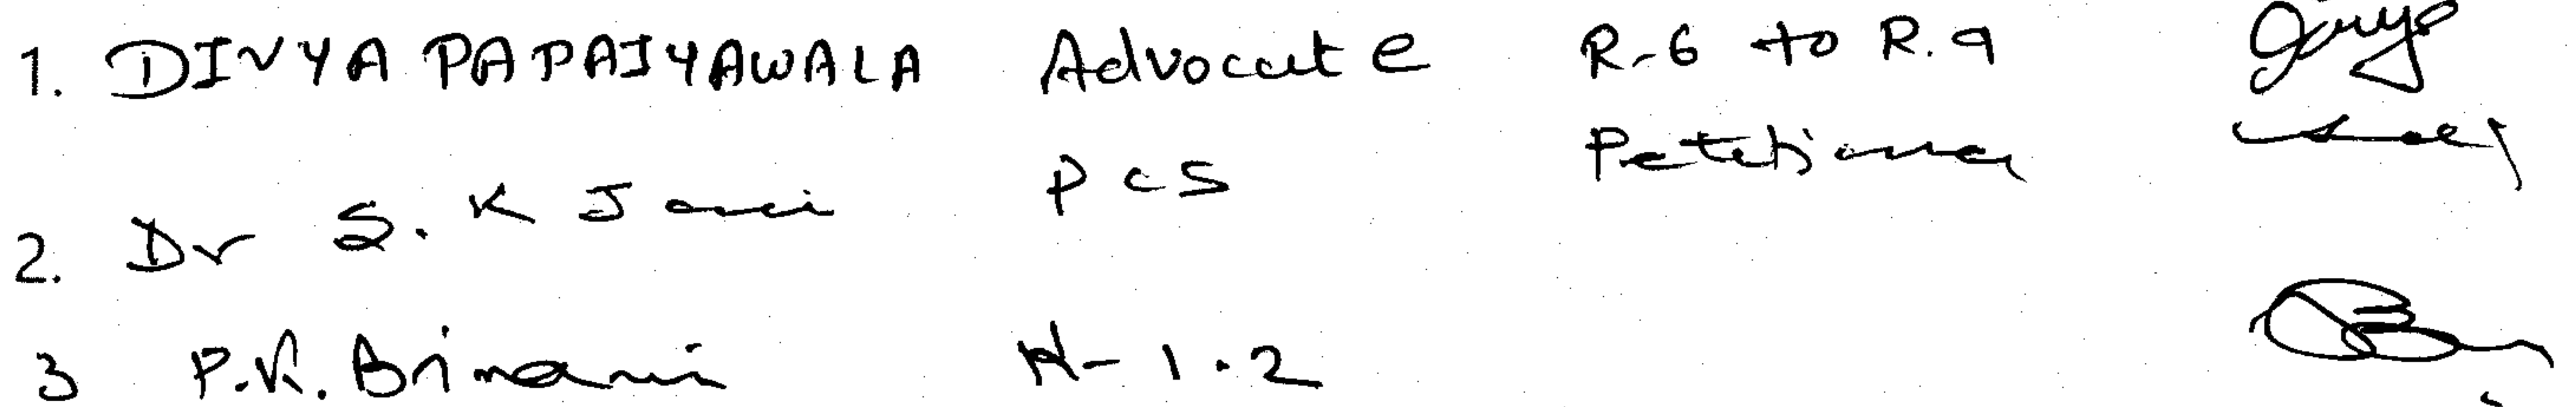 1. DIVYA PAPAIYAWALA Advocate R-6 to R.9
2. Dr S. K Jain PCS Petitioner
3 P.K. Brimani 1.2